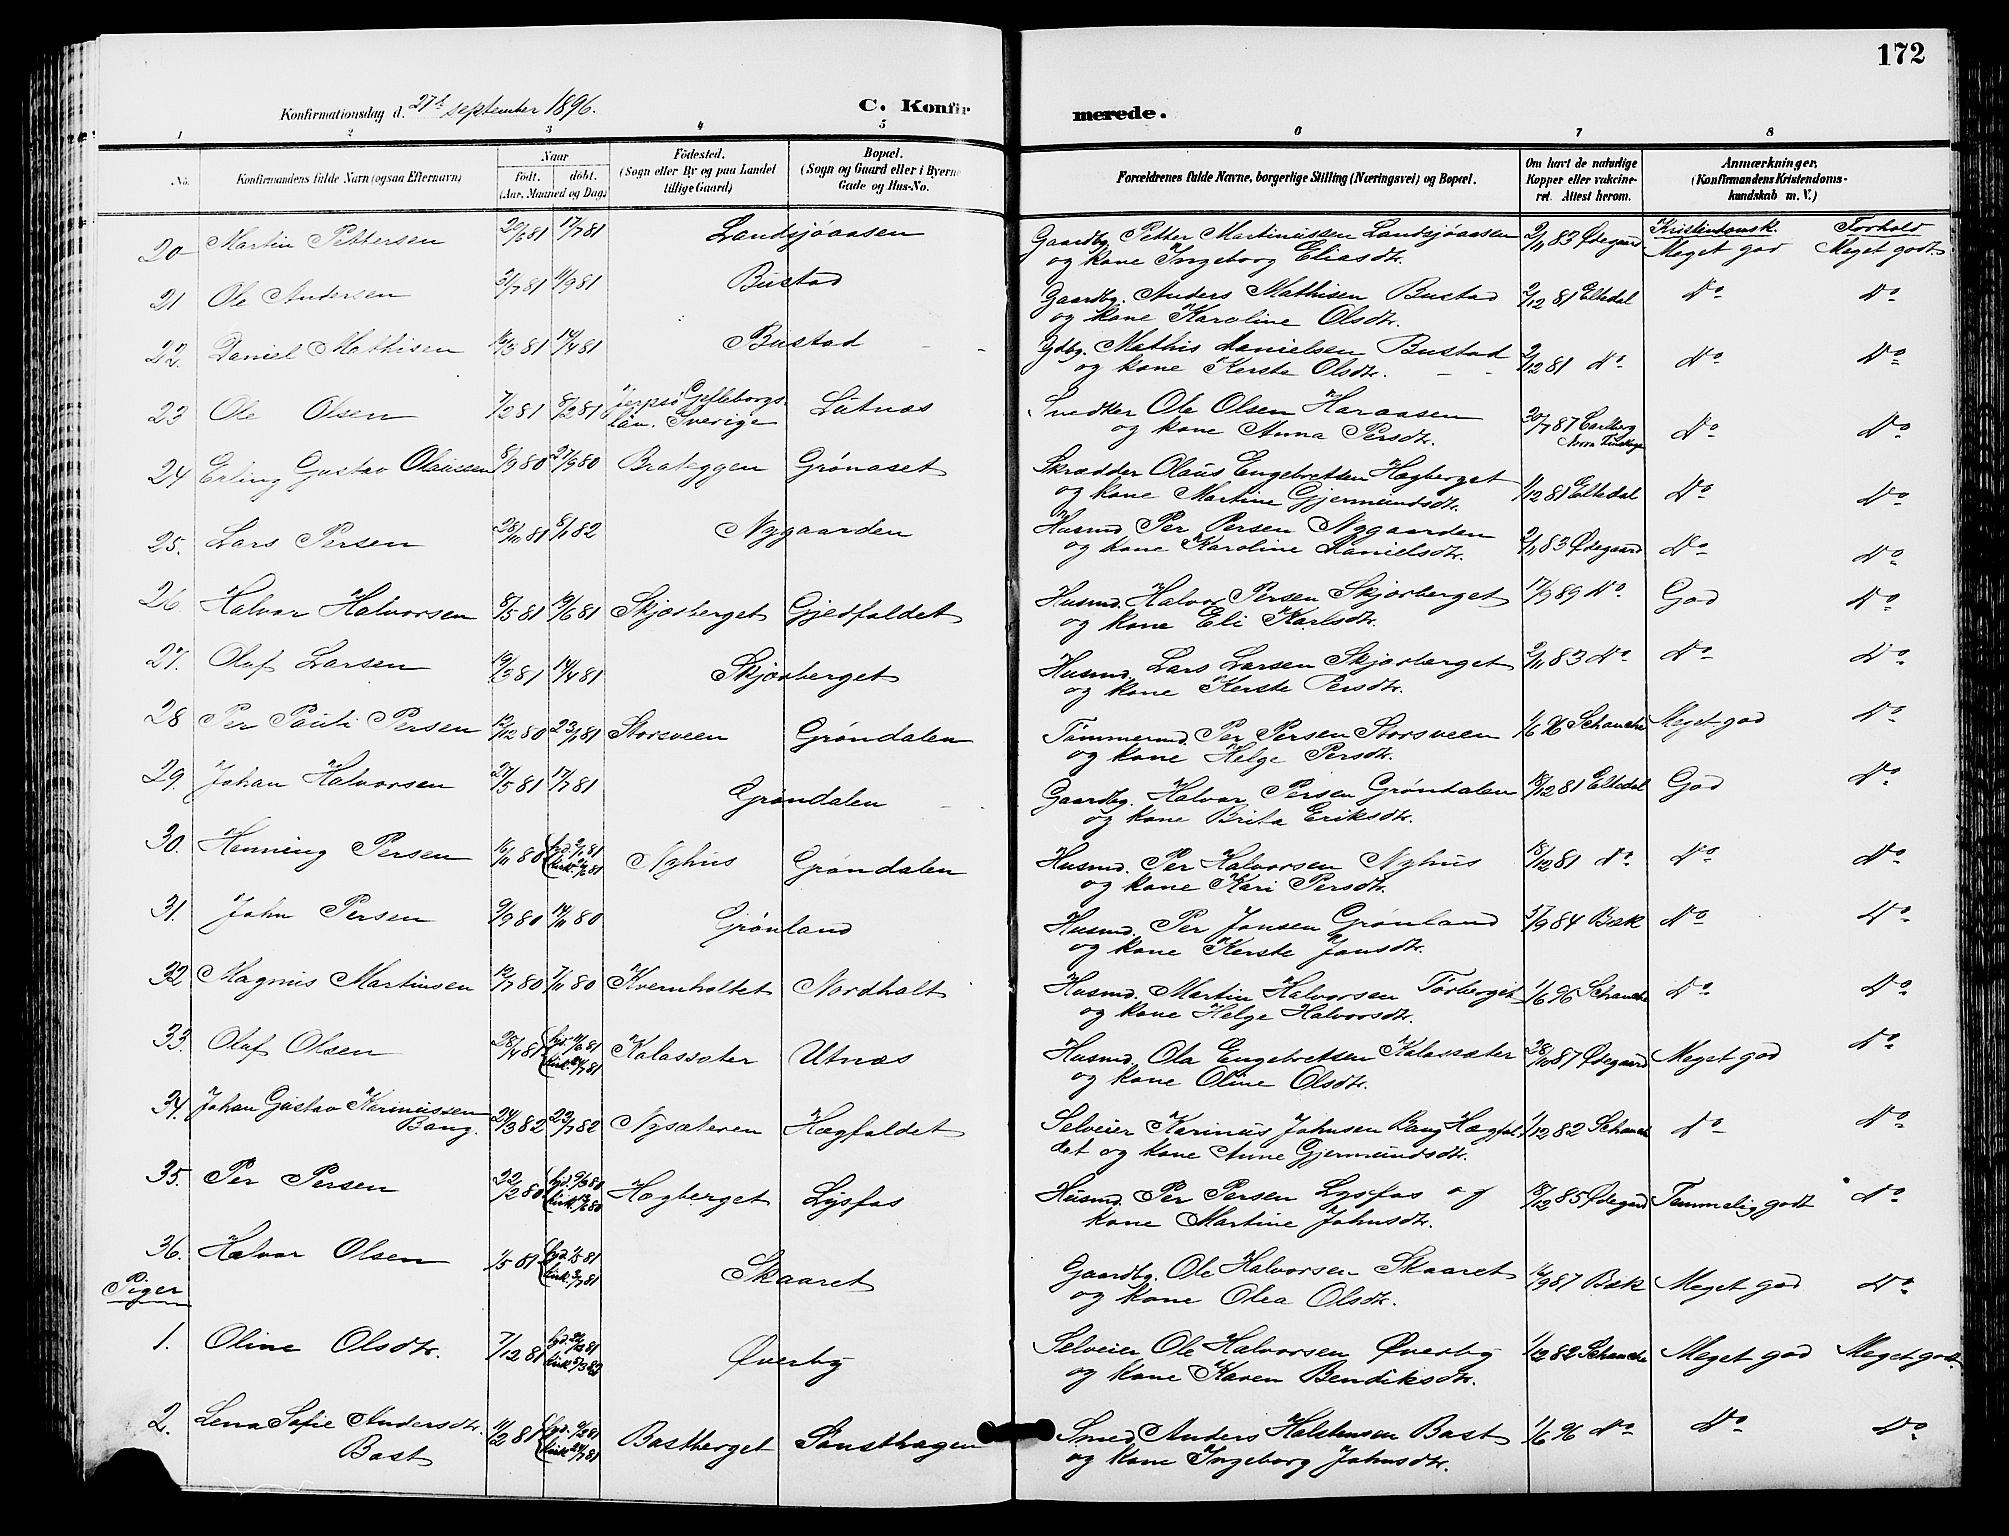 172
Konfirmationsdag d. 27de september 1896.
C. Konfirmerede.
1 2 3 4 5 6 7 8
No. Konfirmandens fulde Navn (ogsaa Efternavn) Naar født. døbt. (Aar, Maaned og Dag) Fødested. (Sogn eller By og paa Landet tillige Gaard) Bopæl. (Sogn og Gaard eller i Byerne Gade og Hus-No. Forældrenes fulde Navne, borgerlige Stilling (Næringsvei) og Bopæl. Om havt de naturlige Kopper eller vakcineret. Attest herom. Anmærkninger. (Konfirmandens Kristendomskundskab m. V.)
Kristendomsk. Forhold
20 Martin Pettersen 20/6 81 17/7 81 Landsjøaasen Gaardbg. Petter Martinussen Landsjøaasen 2/1 83 Ødegaard Meget god Meget godt
og kone Ingeborg Eliasdtr.
21 Ole Andersen 21/7 81 4/9 81 Bustad Gaardbg. Anders Mathisen Bustad 2/12 81 Eltedal Do Do
og kone Karoline Olsdtr.
22. Daniel Mathisen 10/3 81 14/4 81 Bustad Gdbg. Mathis Danielsen Bustad 2/12 81 Do Do Do
og kone Kerste Olsdtr.
23 Ole Olsen 7/2 81 8/2 81 Jerpsø Gefleborgs län. Sverige Lutnæs Snedker Ole Olsen Haraasen 20/7 87 Carlberg Do Do
og kone Anna Persdtr.
24 Erling Gustav Olaussen 8/9 80 27/9 80 Brateggen Grønaset Skrædder Olaus Engebretsen Hægberget 1/12 81 Eltedal Do Do
og kone Martine Gjermundsdtr.
25. Lars Persen 28/10 81 6/1 82 Nygaarden Husmd. Per Persen Nygaarden 2/1 83 Ødegaard Do Do
og kone Karoline Danielsdtr.
26 Halvor Halvorsen 8/5 81 10/6 81 Skjærberget Gjedfaldet Husmd. Halvor Persen Skjærberget 17/9 89 Do God Do
og kone Eli Karlsdtr.
27. Oluf Larsen 19/3 81 14/4 81 Skjærberget Husmd. Lars Larsen Skjærberget 2/1 83 Do Do Do
og kone Kerste Persdtr.
28 Per Pauli Persen 12/12 80 23/1 81 Storsveen Grøndalen Tømmermd. Per Persen Storsveen 1/6 96 Schanche Meget god Do
og kone Helge Persdtr.
29. Johan Halvorsen 27/5 81 17/7 81 Grøndalen Gaardbg. Halvor Persen Grøndalen 18/12 81 Eltedal God Do
og kone Brita Eriksdtr.
30. Henning Persen 16/11 80 Nyhus Grøndalen Husmd. Per Halvorsen Nyhus 18/12 81 Do Do Do
og kone Kari Persdtr.
31. John Persen 9/9 80 14/11 80 Grønland Husmd. Per Jonsen Grønland 17/9 84 Bæk Do Do
og kone Kerste Jonsdtr.
32 Magnus Martinsen 12/7 80 7/11 80 Kvernholtet Nordholt Husmd. Martin Halvorsen Tørberget 1/6 96 Schanche Do Do
og kone Helge Halvorsdtr.
33. Oluf Olsen 28/4 81 Kalassæter Utnæs Husmd. Ola Engebretsen Kalassæter 28/10 87 Ødegaard Meget god Do
og kone Oline Olsdtr.
34. Johan Gustav Karinussen Bang. 24/3 82 23/7 82 Nysæteren Hægfaldet Selveier Karinus Johnsen Bang Hægfal- 1/12 82 Schanche Do Do
det og kone Anne Gjermundsdtr.
35. Per Persen 22/2 80 Hægberget Lysfos Husmd. Per Persen Lysfos og 18/12 85 Ødegaard Temmelig godt Do
kone Martine Johnsdtr.
36. Halvor Olsen 1/5 81 Skaaret Gaardbg. Ole Halvorsen Skaaret 16/9 87 Bæk Meget god Do
og kone Olea Olsdtr.
Piger
1. Oline Olsdtr. 7/12 81 Øverby Selveier Ole Halvorsen Øverby 1/12 82 Schanche Meget god Meget godt
og kone Karen Bendiksdtr.
2. Lena Sofie Andersdtr. Bast 11/2 81 Bastberget Sønsthagen Smed Anders Halstensen Bast 1/6 96 Do Do Do
og kone Ingeborg Johnsdtr.